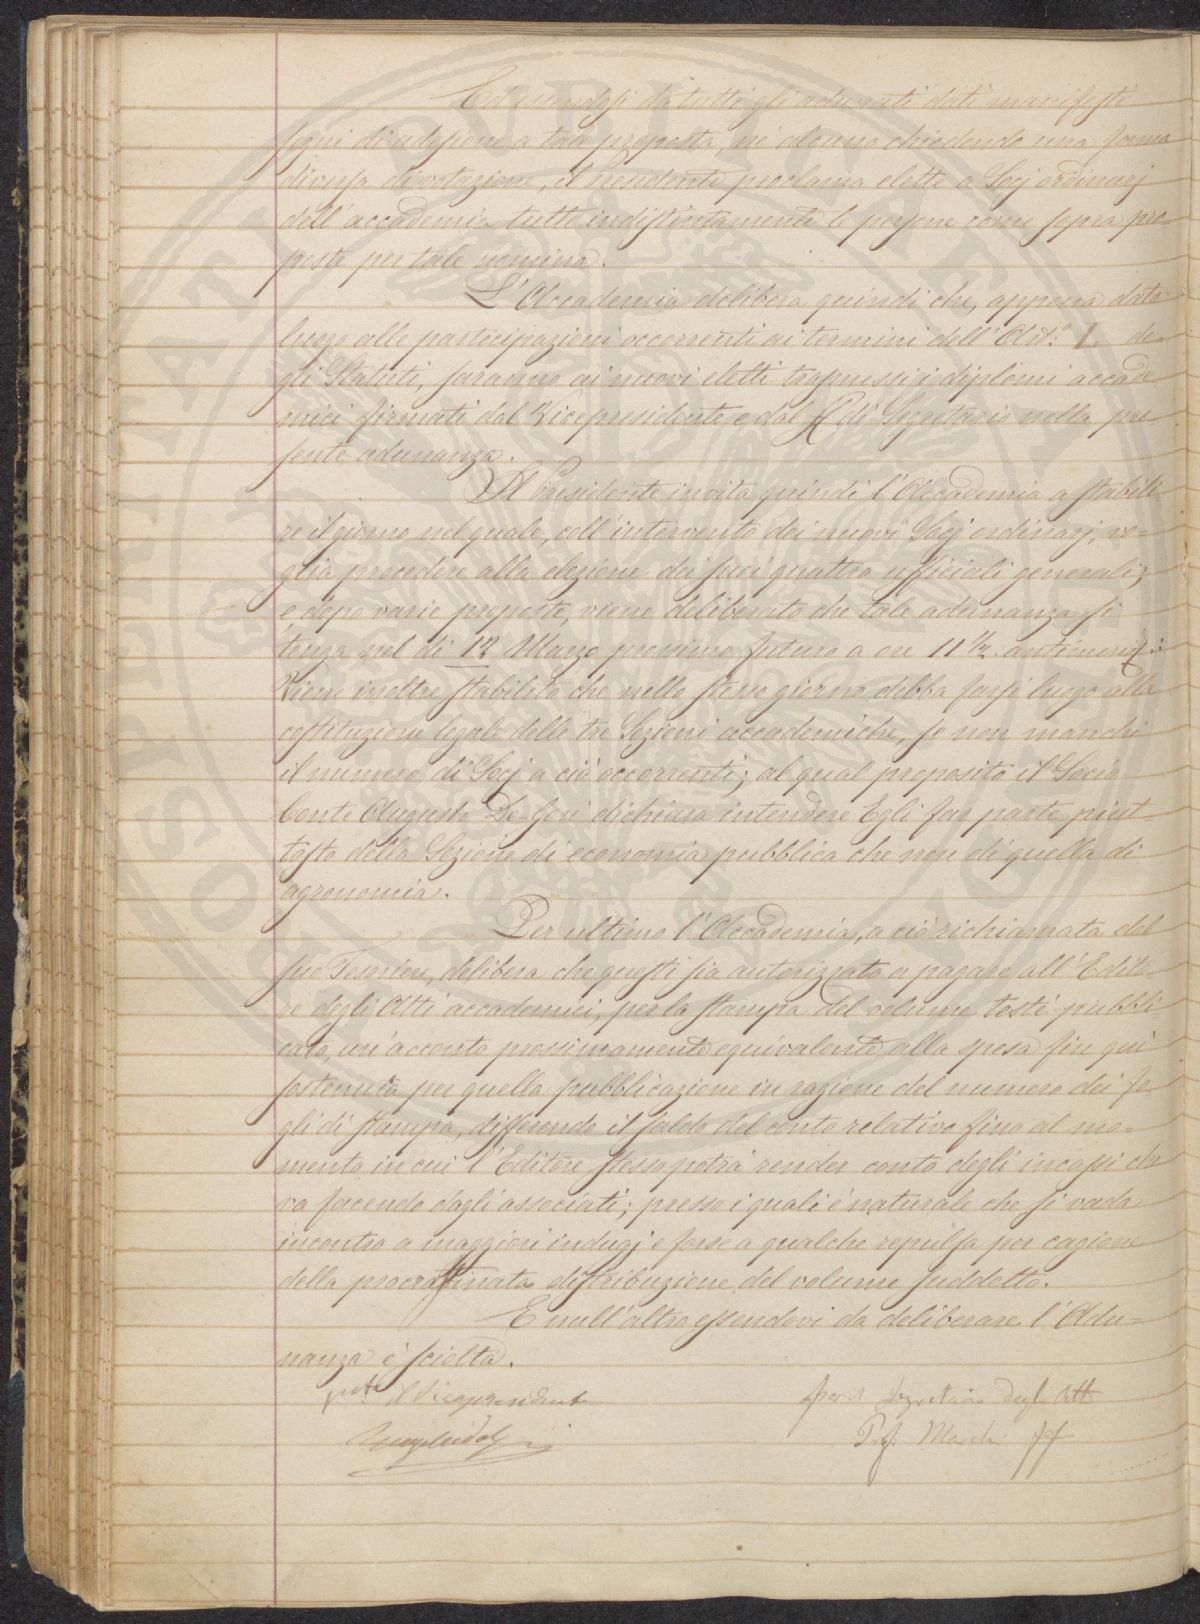 Ed essendosi da tutti gli adunati dati manifesti
segni di adesione a tale proposta, nè alcuno chiedendo una forma
diversa di votazione, il Presidente proclama elette a Socj ordinarj
dell'accademia tutte indistintamente le persone come sopra pro-
poste per tale nomina.
L'Accademia delibera quindi che, appena dato
luogo alle partecipazioni occorrenti ai termini dell'Art.º 1. de-
gli Statuti, saranno ai nuovi eletti trasmessi i diplomi accade
mici firmati dal Vicepresidente e dal ff di Segretario nella pre-
sente adunanza.
Il Presidente invita quindi l'Accademia a stabili-
re il giorno nel quale, coll'intervento dei nuovi Socj ordinarj, vo-
glia procedere alla elezione dei suoi quattro ufficiali generali;
e dopo varie proposte, viene deliberato che tale adunanza si
tenga nel di 12 Marzo prossimo futuro a ore 11 ½ antimerid:
Viene inoltre stabilito che nello stesso giorno debba farsi luogo alla
costituzione legale delle tre Sezioni accademiche, se non manchi
il numero di Socj a ciò occorrenti; al qual proposito il Socio
Conte Augusto De Gori dichiara intendere Egli far parte piut-
tosto della Sezione di economia pubblica che non di quella di
agronomia.
Per ultimo l'Accademia, a ciò richiamata dal
suo Tesoriere, delibera che questi sia autorizzato a pagare all'Edito-
re degli Atti accademici, per la stampa del volume testé pubbli
cato, un'acconto prossimamente equivalente alla spesa fin quì
sostenuta per quella pubblicazione in ragione del numero dei fo-
gli di stampa, differendo il saldo del conto relativo fino al mo-
mento in cui l'Editore stesso potrà render conto degli incassi che
va facendo dagli associati; presso i quali è naturale che si vada
incontro a maggiori indugj e forse a qualche repulsa per cagione
della procrastinata distribuzione del volume suddetto.
E null'altro essendovi da deliberare l'Adu-
nanza è sciolta.
il Vicepresidente
per il Segretario degli Atti
Prof. Maschi ff